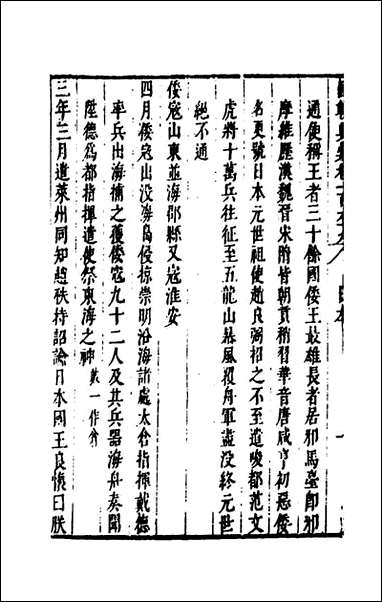 通使稱王者三十餘國倭王最雄長者居邪馬臺即邪
摩維歷漢魏晉宋隋皆朝貢稍習華音唐咸亨初惡倭
名更號日本元世祖使趙良弼招之不至遣唆都范文
虎將十萬兵往征至五龍山暴風覆舟軍盡没終元世
絕不通
倭寇山東並海郡縣又寇淮安
四月倭寇出没海島侵掠崇明沿海諸處太倉指揮戴德
率兵出海捕之獲倭寇九十二人及其兵器海舟奏聞
陞德爲都指揮遣使祭東海之神戴一作翁
三年三月遣萊州同知趙秩持詔諭日本國王良懷曰朕